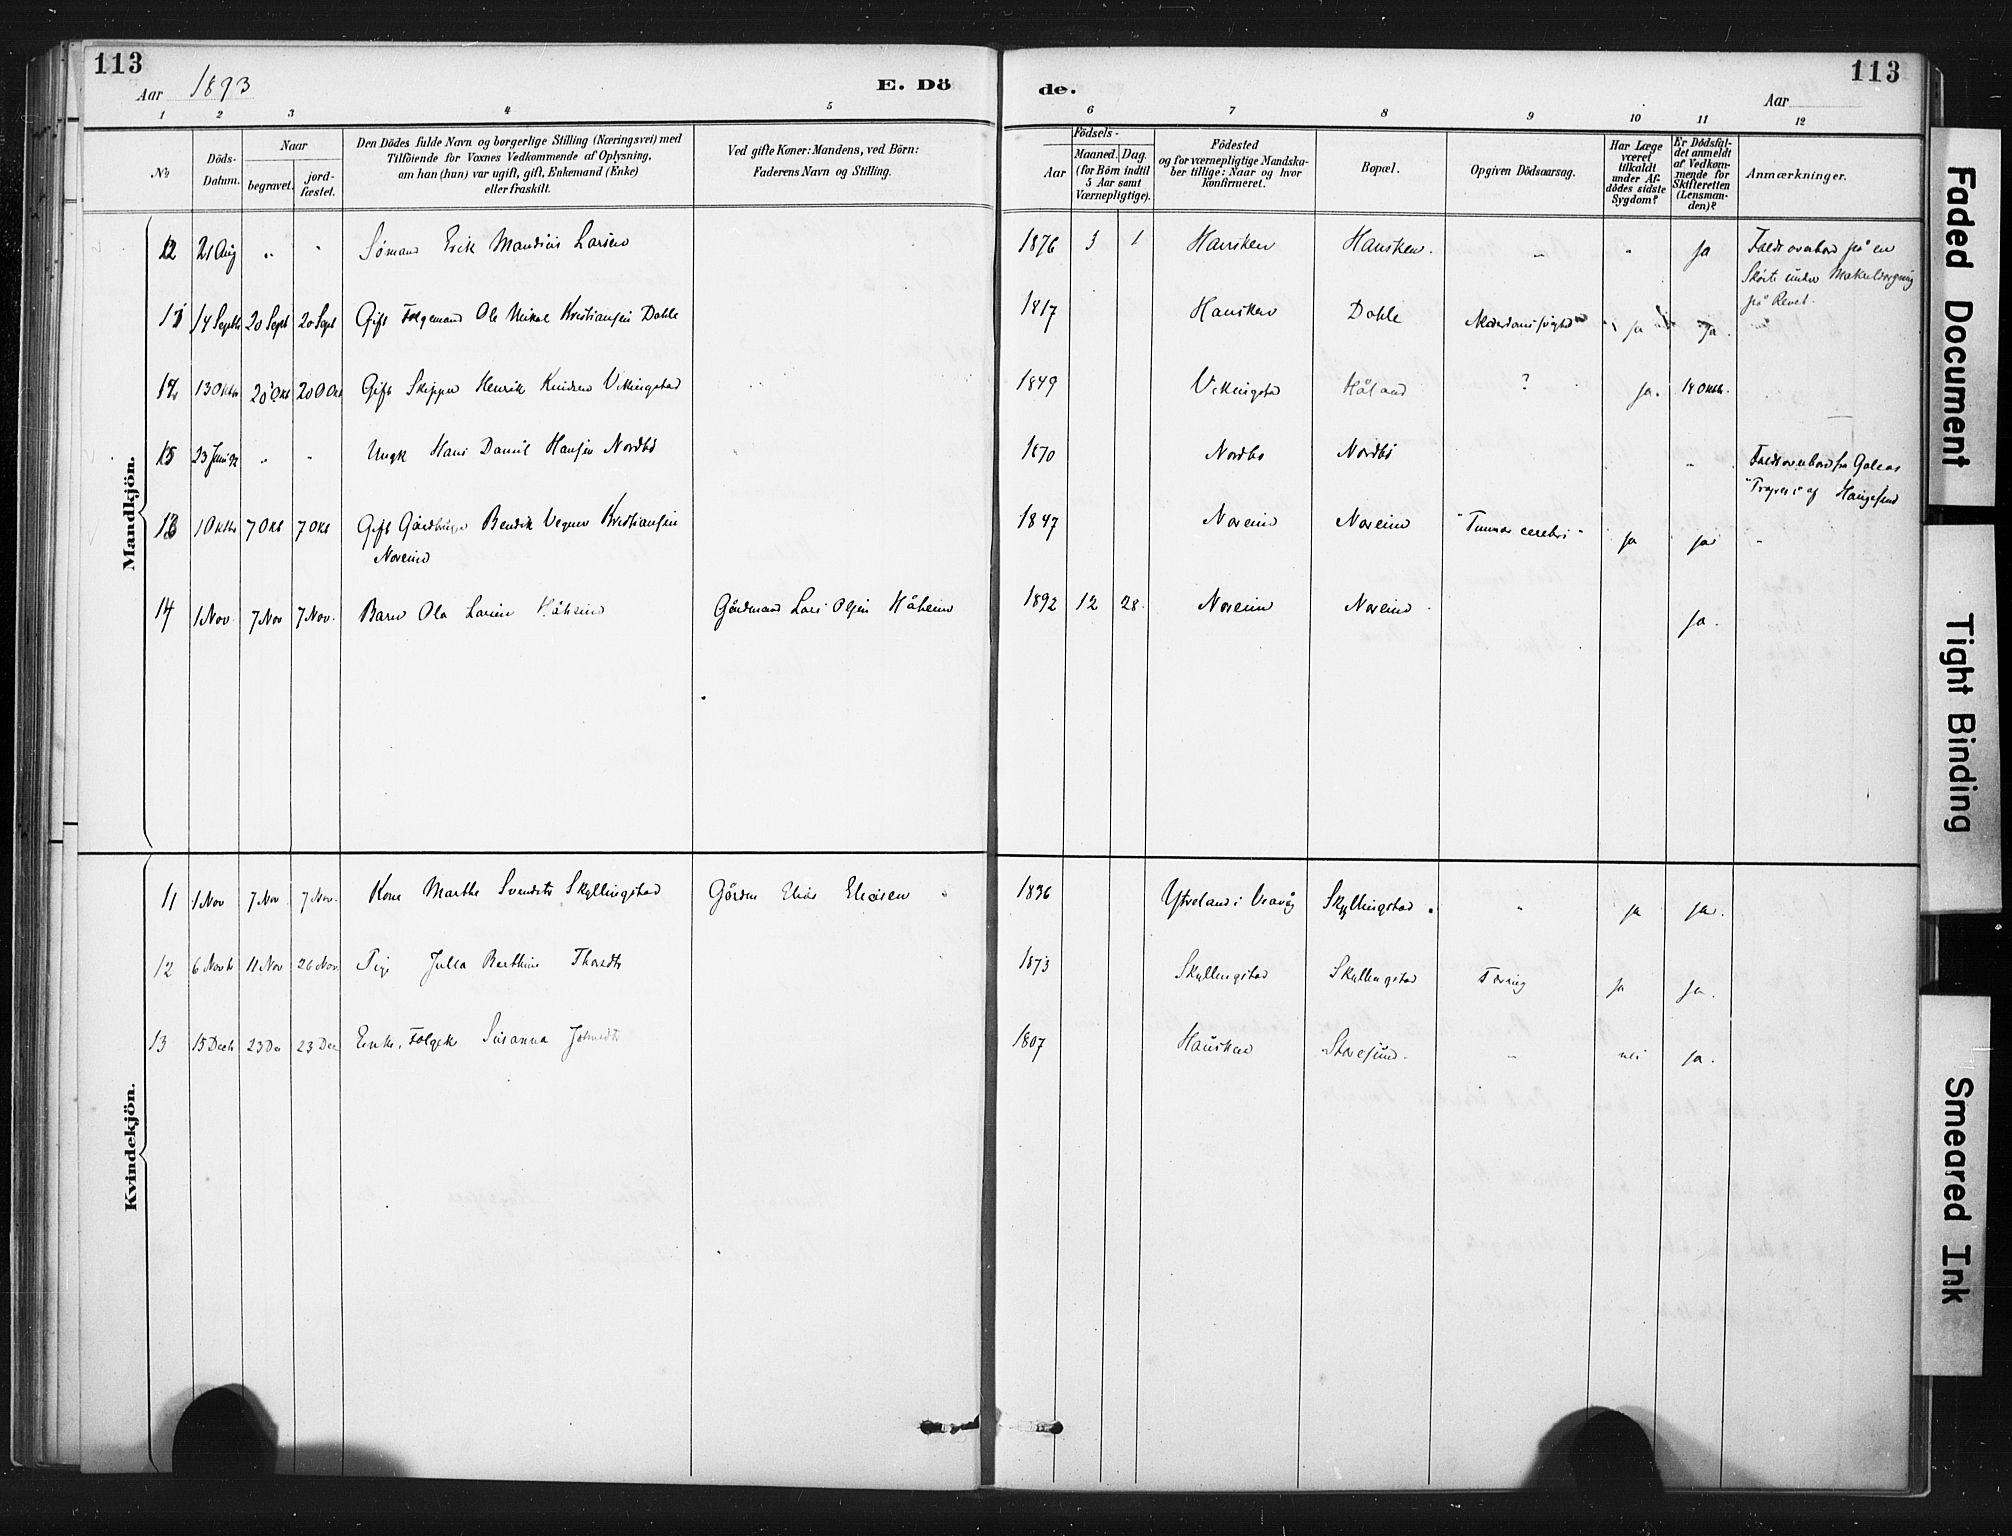 113
Aar 1893
E. Dö
de.
113
Aar
1 2 3 4 5 6 7 8 9 10 11 12
No
Döds-Datum.
Naar
begravet.
jord-fæstet.
Den Dödes fulde Navn og borgerlige Stilling (Næringsvei) med
Tilföiende for Voxnes Vedkommende af Oplysning,
om han (hun) var ugift, gift, Enkemand (Enke)
eller fraskilt.
Ved gifte Koner: Mandens, ved Börn:
Faderens Navn og Stilling.
Födsels-
Aar
Maaned. Dag.
(for Börn indtil
5 Aar samt
Værnepligtige).
Födested
og for værnepligtige Mandska-
ber tillige: Naar og hvor
konfirmeret.
Bopæl.
Opgiven Dödsaarsag.
Har Læge
været
tilkaldt
under Af-
dödes sidste
Sygdom?
Er Dödsfal-
det anmeldt
af Vedkom-
mende for
Skifteretten
(Lensman-
den)?
Anmærkninger.
Mandkjön.
12 21 Aug " " Sømand Erik Mandius Larsen 1876 3 1 Hausken Hausken. " " ja Faldt overbord på en
Skøite under
på Revet.
14 Septb 20 Sept 20 Sept Gift Ole Mikal Kristiansen Dahle 1817 Hausken Dahle ja ja
13 Oktbr 20 Okt 20 Okt Gift Skipper Henrik Knudsen Vikingstad 1849 Vikingstad Håland ? ja. 14 Oktbr.
15 23 Juni 92 " " Ungk Hans Daniel Hansen Nordbö 1870 Nordbö Nordbö " Faldt overbord fra Galeas
af Haugesund
13 1 Oktbr 7 Okt 7 Okt Gift Gårdbruger Bendik Vegner Kristiansen
Noreim
1847 Noreim Noreim "Tumor cerebri" ja ja "
14 1 Nov. 7 Nov 7 Nov. Barn Ola Larsen Håheim Gårdmand Lars Olsen Håheim 1892 12 28. Noreim Noreim ja.
Kvindekjön.
11 1 Nov 7 Nov 7 Nov. Kone Marthe Svendsdtr Skyllingstad Gårdm Elias Eliasen 1836 Ytreland i Vravåg Skyllingstad. " ja ja.
12 6 Novbr 11 Nov 26 Nov. Pige Julla Berthine Thorsdtr 1873 Skyllingstad Skyllingstad Tæring ja ja.
13 15 Decb 23 De 23 Dec Enke, Susanna 1807 Hausken Storesund. " nei ja.
Faded Document
Tight Binding
Smeared Ink